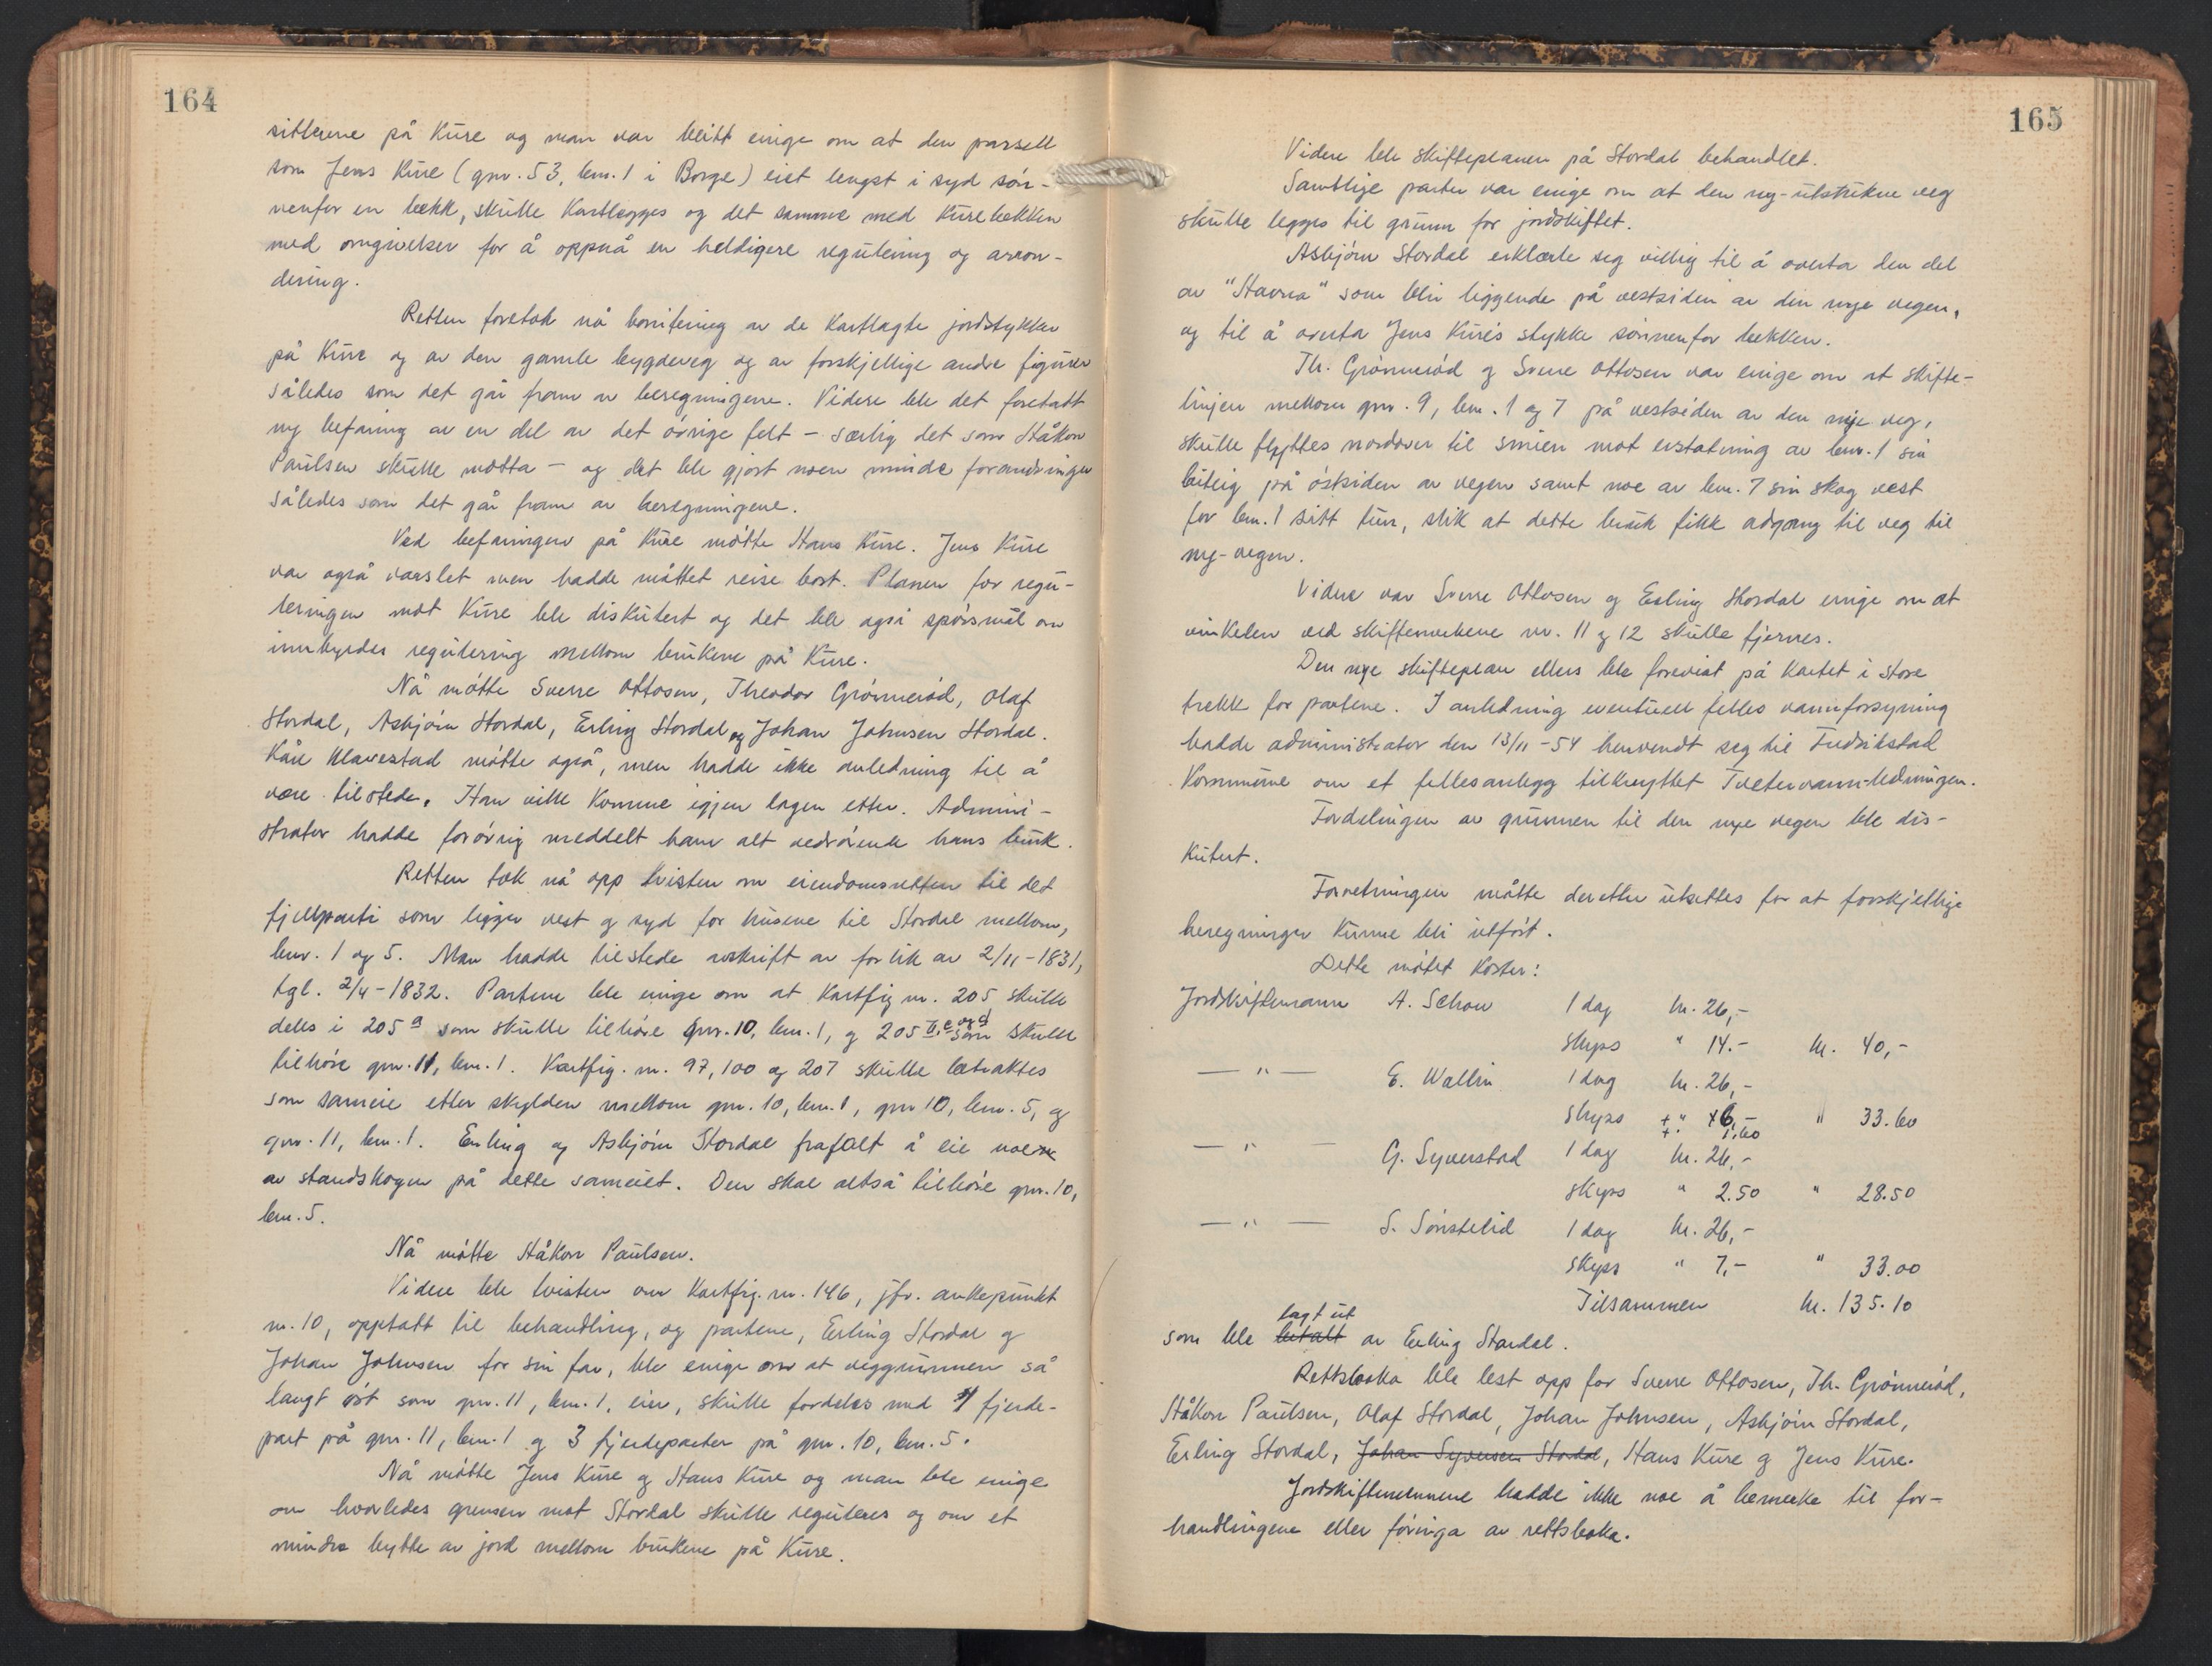 164
sitterne på Kure og man var blitt enige om at den parsell
som Jens Kure (gnr. 53, bnr. 1 i Borge) eiet lengst i syd søn-
nenfor en bekk, skulle kartlegges og det samme med Kurebekken
med omgivelser for å oppnå en heldigere regulering og arron-
dering.
Retten foretok nå bonitering av de kartlagte jordstykker
på Kure og av den gamle bygdeveg og av forskjellige andre figurer
således som det går fram av beregningene. Videre ble det foretatt
ny befaring av en del av det øvrige felt - særlig det som Håkon
Paulsen skulle motta - og det ble gjort noen mindre forandringer
således som det går fram av beregningene.
Ved befaringen på Kure møtte Hans Kure. Jens Kure
var også varslet men hadde måttet reise bort. Planen for regu-
leringen mot Kure ble diskutert og det ble også spørsmål om
innbyrdes regulering mellom brukene på Kure.
Nå møtte Sverre Ottosen, Theodor Grønnerød, Olaf
Stordal, Asbjørn Stordal, Erling Stordal og Johan Johnsen Stordal.
Kåre Klavestad møtte også, men hadde ikke anledning til å
være tilstede. Han ville komme igjen lagen etter. Admini-
strator hadde forøvrig meddelt ham alt vedrørende hans bruk.
Retten tok nå opp tvisten om eiendomsretten til det
fjellparti som ligger vest og syd for husene til Stordal mellom,
bnr. 1 og 5. Man hadde tilstede avskrift av forlik av 2/11-1831,
tgl. 2/4-1832. Partene ble enige om at kartfig nr. 205 skulle
deles i 205 a som skulle tilhøre gnr. 10, bnr. 1, og 205 b, c og d som skulle
tilhøre gnr. 11, bnr. 1. Kartfig. nr. 97, 100 og 207 skulle betraktes
som sameie etter skylden mellom gnr. 10, bnr. 1, gnr 10, bnr. 5, og
gnr. 11, bnr. 1. Erling og Asbjørn Stordal frafalt å eie noe
av standskogen på dette sameiet. Den skal altså tilhøre gnr. 10,
bnr. 5.
Nå møtte Håkon Paulsen.
Videre ble tvisten om kartfig. nr. 146, jfr. ankepunkt
nr. 10, opptatt til behandling, og partene, Erling Stordal og
Johan Johnsen for sin far, ble enige om at veggrunnen så
langt øst som gnr. 11, bnr. 1, eier, skulle fordeles med 1 fjerde-
part på gnr. 11, bnr. 1 og 3 fjerdeparter på gnr. 10, bnr. 5.
Nå møtte Jens Kure og Hans Kure og man ble enige
om hvorledes grensen mot Stordal skulle reguleres og om et
mindre bytte av jord mellom brukene på Kure.
165
Videre ble skifteplanen på Stordal behandlet.
Samtlige parter var enige om at den ny-utstukne veg
skulle legges til grunn for jordskiftet.
Asbjørn Stordal erklærte seg villig til å overta den del
av "Stavna" som blir liggende på vestsiden av den nye vegen,
og til å overta Jens Kures stykke sønnenfor bekken.
Th. Grønnerød og Sverre Ottosen var enige om at skifte-
linjen mellom gnr. 9, bnr. 1 og 7 på vestsiden av den nye veg,
skulle flyttes nordover til smien mot erstatning av bnr. 1 sin
løkke på østsiden av vegen samt noe av bnr. 7 sin skog vest
for bnr. 1 sitt tun, slik at dette bruk fikk adgang til veg til
ny-vegen.
Videre var Sverre Ottosen og Erling Stordal enige om at
vinkelen ved skiftemerkene nr. 11 og 12 skulle fjernes.
Den nye skifteplan ellers ble forevist på kartet i store
trekk for partene. I anledning eventuell felles vannforsyning
hadde administrator den 13/11-54 henvendt seg til Fredrikstad
Kommune om et fellesanlegg tilknyttet Tvetervann-ledningen.
Fordelingen av grunnen til den nye vegen ble dis-
kutert.
Forretningen måtte deretter utsettes for at forskjellige
beregninger kunne bli utført.
Dette møtet koster:
Jordskiftemann A. Schou 1 dag kr. 26,-
skyss " 14.- kr. 40,-
— " — E. Wallin 1 dag kr. 26,-
skyss + " 6,-
+ " 1.60 " 33.60
— " — G. Syverstad 1 dag kr. 26,-
skyss " 2.50 " 28.50
— " — S. Sønstelid 1 dag kr. 26,-
skyss " 7,- " 33.00
Tilsammen kr. 135.10
lagt ut
som ble betalt av Erling Stordal.
Rettsboka ble lest opp for Sverre Ottosen, Th. Grønnerød,
Håkon Paulsen, Olaf Stordal, Johan Johnsen, Asbjørn Stordal,
Erling Stordal, Johan Syversen Stordal, Hans Kure og Jens Kure.
Jordskiftemennene hadde ikke noe å bemerke til for-
handlingene eller føringa av rettsboka.